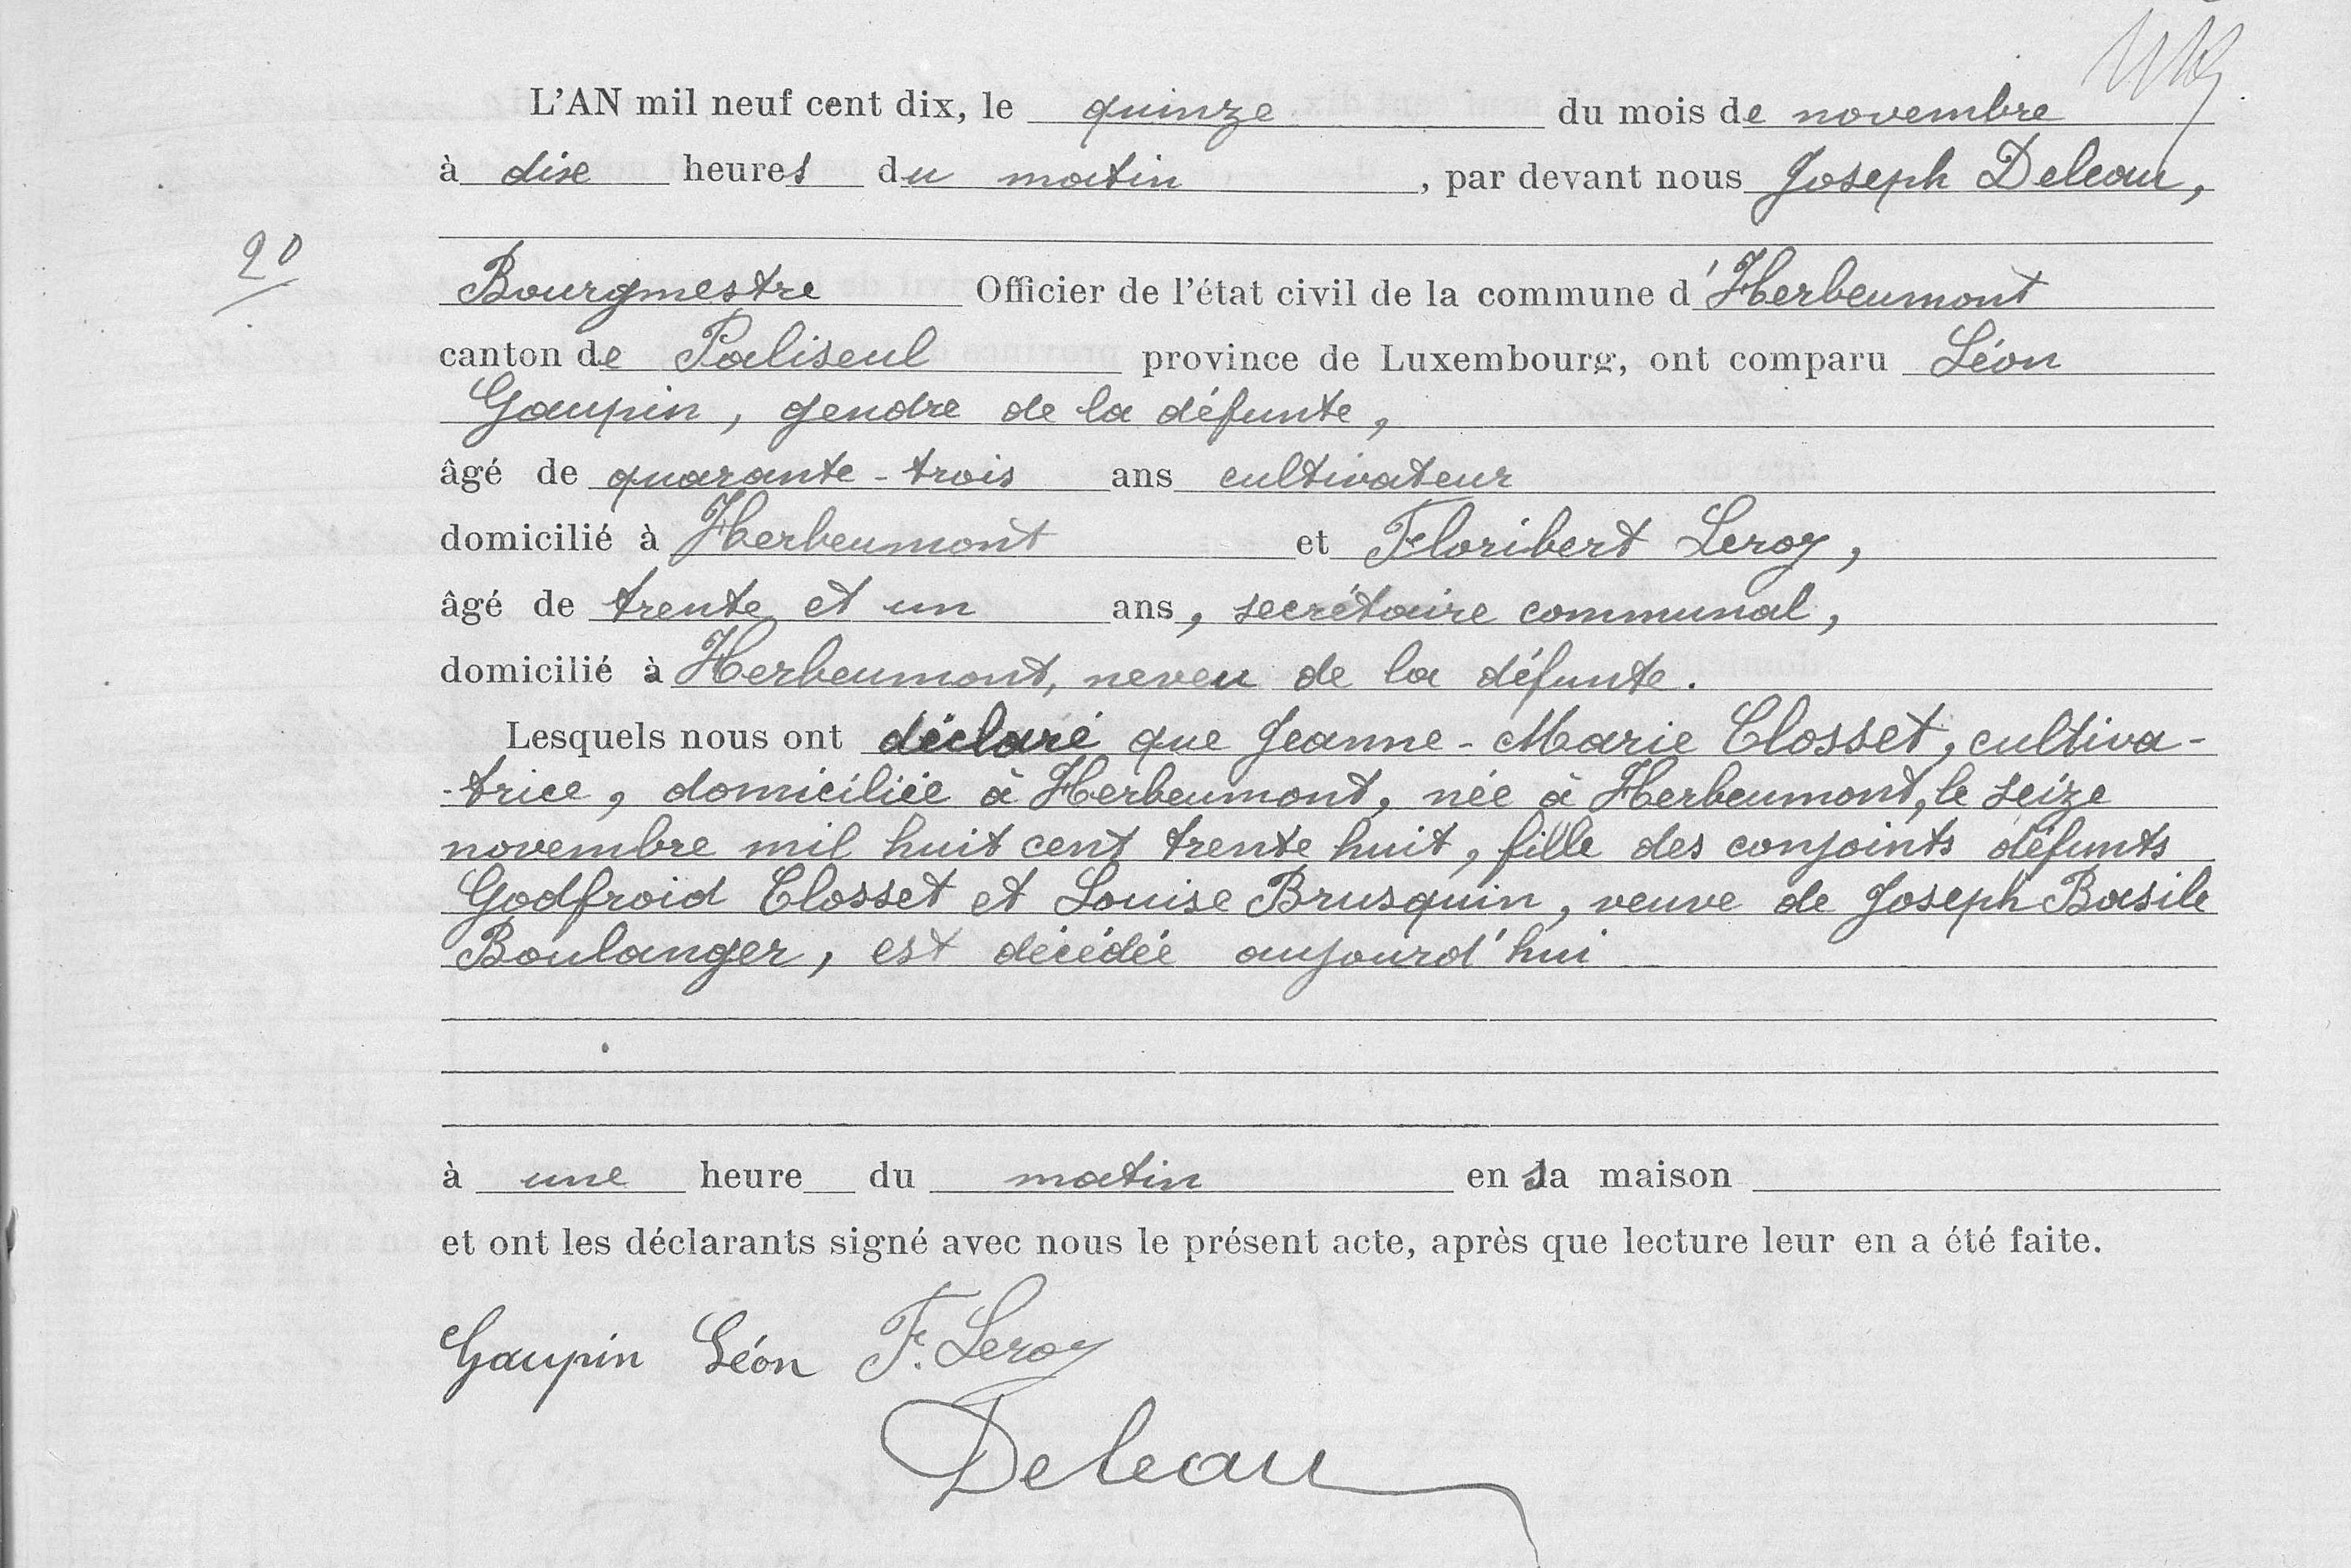 L'AN mil neuf cent dix, le quinze du mois de novembre
à dix heures du matin, par devant nous Joseph Deleau,
20
Bourgmestre Officier de l'état civil de la commune d'Herbeumont
canton de Paliseul province de Luxembourg, ont comparu Léon
Gaupin, gendre de la défunte,
âgé de quarante-trois ans cultivateur
domicilié à Herbeumont et Floribert Leroy,
âgé de trente et un ans, secrétaire communal,
domicilié à Herbeumont, neveu de la défunte.
Lesquels nous ont déclaré que Jeanne-Marie Closset, cultiva-
-trice, domiciliée à Herbeumont, née à Herbeumont, le seize
novembre mil huit cent trente huit, fille des conjoints défunts
Godfroid Closset et Louise Brusquin, veuve de Joseph Basile
Boulanger, est décédée aujourd'hui
à une heure du matin en sa maison
et ont les déclarants signé avec nous le présent acte, après que lecture leur en a été faite.
Gaupin Léon F. Leroy
Deleau